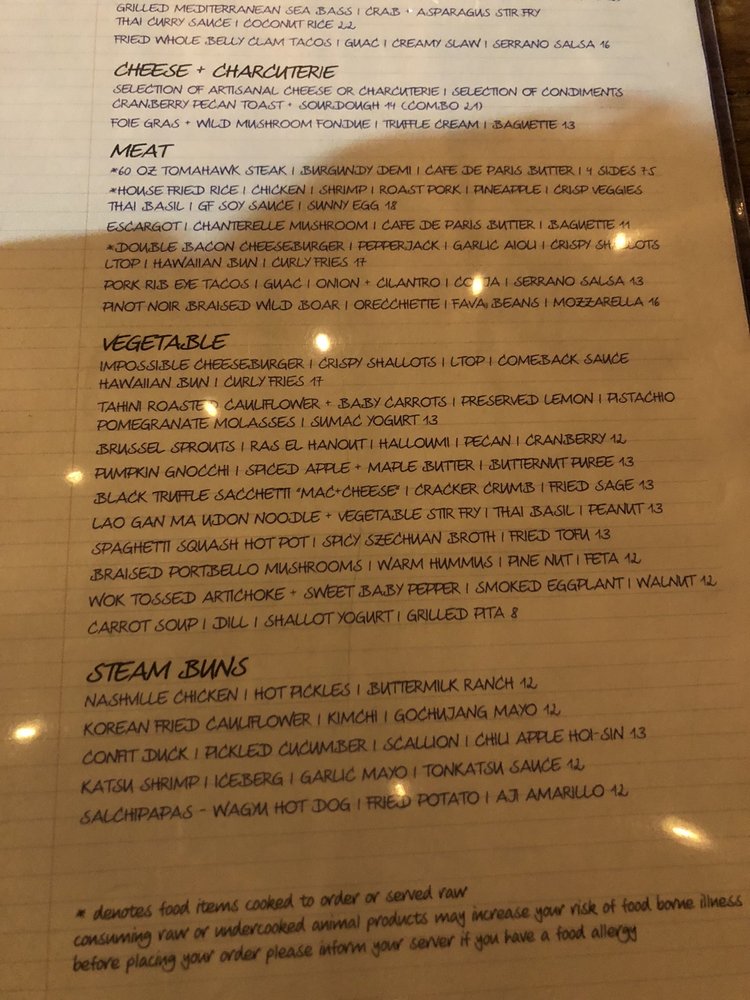 GRILLED MEDITERRANEAN SEA BASS | CRAB + ASPARAGUS STIR FRY
THAI CURRY SAUCE | COCONUT RICE 22
FRIED WHOLE BELLY CLAM TACOS | GUAC | CREAMY SLAW | SERRANO SALSA 16
CHEESE + CHARCUTERIE
SELECTION OF ARTISANAL CHEESE OR CHARCUTERIE | SELECTION OF CONDIMENTS
CRANBERRY PECAN TOAST + SOURDOUGH 14 (COMBO 21)
FOIE GRAS + WILD MUSHROOM FONDUE | TRUFFLE CREAM | BAGUETTE 13
MEAT
*60 OZ TOMAHAWK STEAK | BURGUNDY DEMI | CAFE DE PARIS BUTTER | 4 SIDES 75
*HOUSE FRIED RICE | CHICKEN | SHRIMP | ROAST PORK | PINEAPPLE | CRISP VEGGIES
THAI BASIL | GF SOY SAUCE | SUNNY EGG 18
ESCARGOT | CHANTERELLE MUSHROOM | CAFE DE PARIS BUTTER | BAGUETTE 11
*DOUBLE BACON CHEESEBURGER | PEPPERJACK | GARLIC AIOLI | CRISPY SHALLOTS
LTOP | HAWAIIAN BUN | CURLY FRIES 17
PORK RIB EYE TACOS | GUAC | ONION + CILANTRO | COTIJA | SERRANO SALSA 13
PINOT NOIR BRAISED WILD BOAR | ORECCHIETTE | FAVA BEANS | MOZZARELLA 16
VEGETABLE
IMPOSSIBLE CHEESEBURGER | CRISPY SHALLOTS | LTOP | COMEBACK SAUCE
HAWAIIAN BUN | CURLY FRIES 17
TAHINI ROASTED CAULIFLOWER + BABY CARROTS | PRESERVED LEMON | PISTACHIO
POMEGRANATE MOLASSES | SUMAC YOGURT 13
BRUSSEL SPROUTS | RAS EL HANOUT | HALLOUMI | PECAN | CRANBERRY 12
PUMPKIN GNOCCHI | SPICED APPLE + MAPLE BUTTER | BUTTERNUT PUREE 13
BLACK TRUFFLE SACCHETTI "MAC+CHEESE" | CRACKER CRUMB | FRIED SAGE 13
LAO GAN MA UDON NOODLE + VEGETABLE STIR FRY | THAI BASIL | PEANUT 13
SPAGHETTI SQUASH HOT POT | SPICY SZECHUAN BROTH | FRIED TOFU 13
BRAISED PORTBELLO MUSHROOMS | WARM HUMMUS | PINE NUT | FETA 12
WOK TOSSED ARTICHOKE + SWEET BABY PEPPER | SMOKED EGGPLANT | WALNUT 12
CARROT SOUP | DILL | SHALLOT YOGURT | GRILLED PITA 8
STEAM BUNS
NASHVILLE CHICKEN | HOT PICKLES | BUTTERMILK RANCH 12
KOREAN FRIED CAULIFLOWER | KIMCHI | GOCHUJANG MAYO 12
CONFIT DUCK | PICKLED CUCUMBER | SCALLION | CHILI APPLE HOI-SIN 13
KATSU SHRIMP | ICEBERG | GARLIC MAYO | TONKATSU SAUCE 12
SALCHIPAPAS - WAGYU HOT DOG | FRIED POTATO | AJI AMARILLO 12
* denotes food items cooked to order or served raw
consuming raw or undercooked animal products may increase your risk of food borne illness
before placing your order please inform your server if you have a food allergy